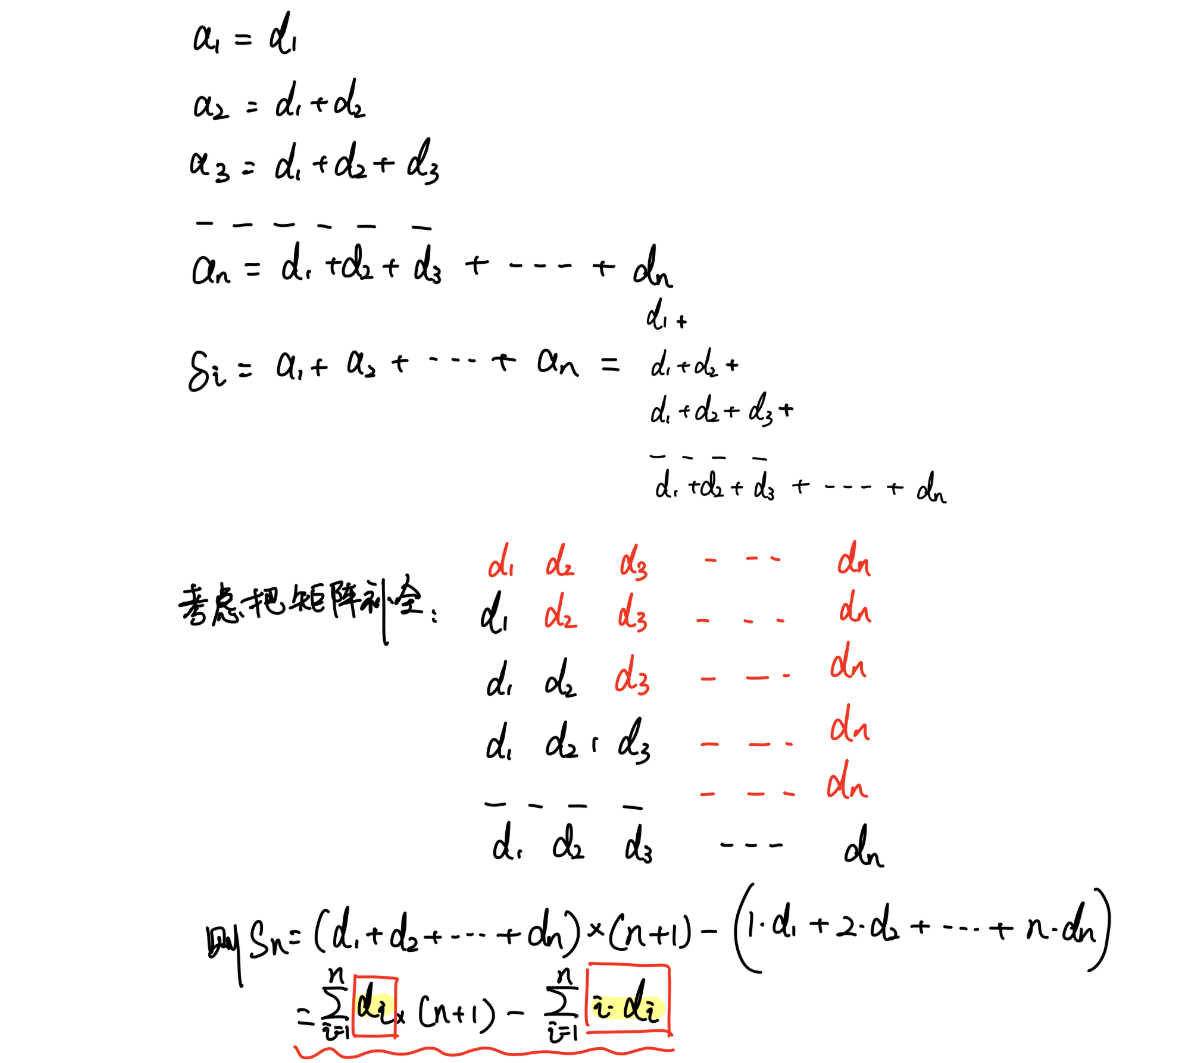 a₁ = d₁
a₂ = d₁+d₂
a₃ = d₁+d₂+d₃
— — — — — —
aₙ = d₁+d₂+d₃ + ---- + dₙ
Sᵢ = a₁+ a₂ + ---- + aₙ = d₁+
d₁+d₂+
d₁+d₂+d₃+
— — — —
d₁+d₂+d₃ + ---- + dₙ
d₁ d₂ d₃ - -- dₙ
考虑把矩阵补全: d₁ d₂ d₃ - -- dₙ
d₁ d₂ d₃ - -- dₙ
d₁ d₂ d₃ - -- dₙ
- -- dₙ
— — — —
d₁ d₂ d₃ --- dₙ
则Sₙ= (d₁+d₂+----+dₙ)×(n+1) - (1·d₁+2·d₂+----+n·dₙ)
= ∑ⁿᵢ₌₁ dᵢ × (n+1) - ∑ⁿᵢ₌₁ i·dᵢ